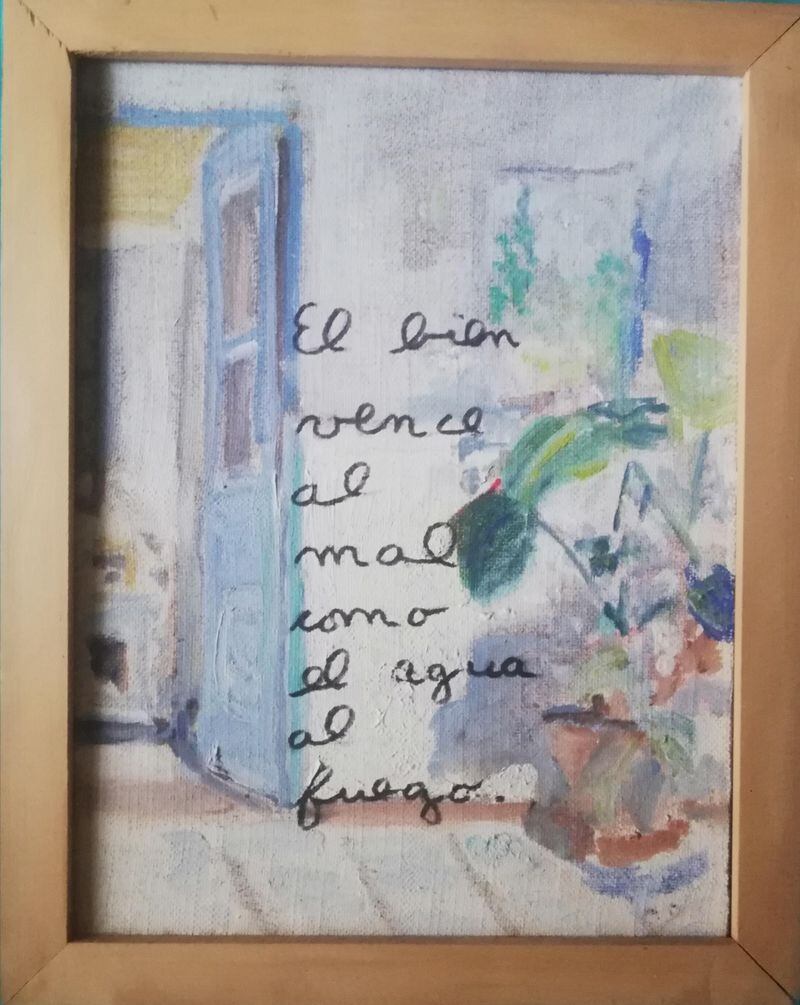 El bien
vence
al
mal
como
el agua
al
fuego.